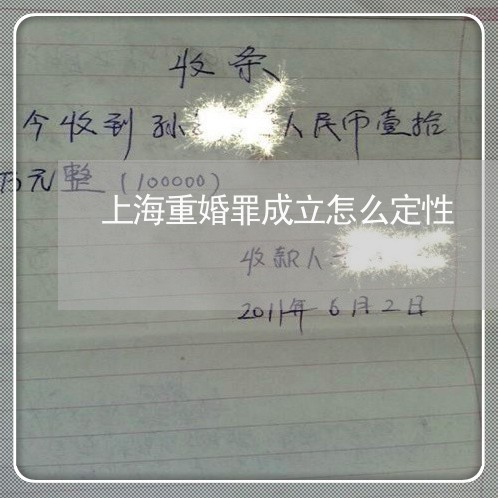 收条
今收到孙 人民币壹拾
万元整(100000)
上海重婚罪成立怎么定性
收款人
2011年6月2日